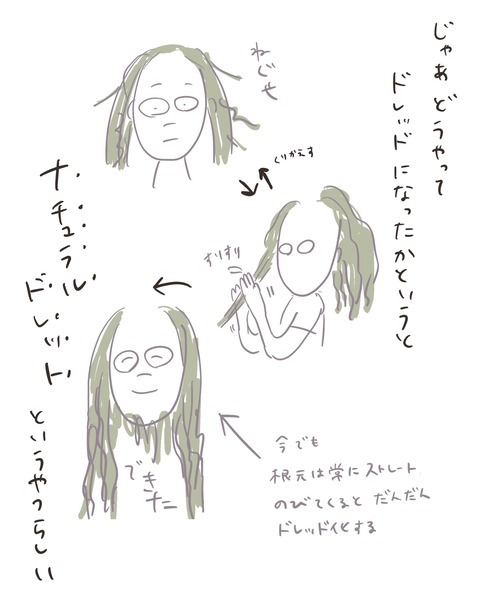 じゃあ どうやって
ドレッド になったかというと
ねぐせ
くりかえす
すりすり
ナチュラル
ドレッド
というやつらしい
できた
今でも
根元は常にストレート
のびてくると だんだん
ドレッド化する